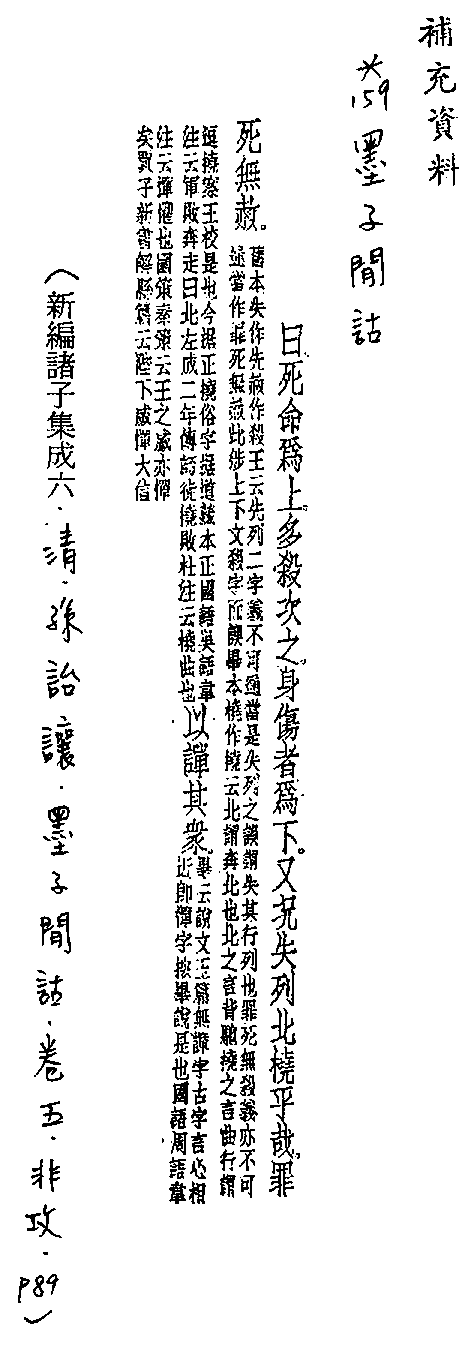 補充資料
※159 墨子閒詁
曰死命爲上多殺次之身傷者爲下。又況失列北橈乎哉罪
死無赦。
舊本失作先赦作殺王云先列二字義不可通當是失列之誤謂失其行列也罪死無殺義亦不可
通當作罪死無赦此涉上下文殺字而誤畢本橈作撓云北謂奔北也北之言背馳撓之言曲行謂
逗撓案王校是也今據正撓俗字據道藏本正國語吳語韋
注云軍敗奔走曰北左成二年傳師徒橈敗杜注云橈曲也
以譂其衆。
畢云說文玉篇無譂字古字言心相
近即憚字按畢說是也國語周語韋
注云憚懼也國策秦策云王之威亦憚
矣賈子新書解縣篇云陛下威憚大信
（新編諸子集成六．清．孫詒讓．墨子閒詁．卷五．非攻．P89）